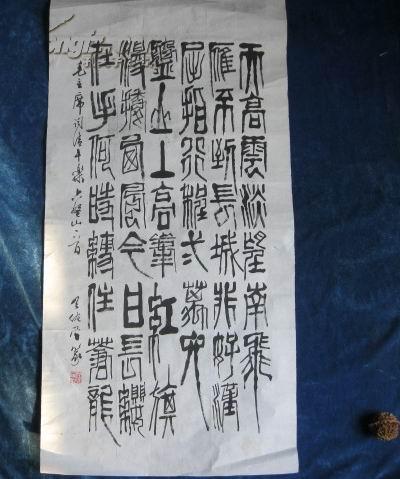 天高雲淡望南飛
雁不到長城非好漢
屈指行程弍萬六
盤山上高峯紅旗
漫捲西風今日長纓
在手何時縛住蒼龍
毛主席词清平樂六盤山一首